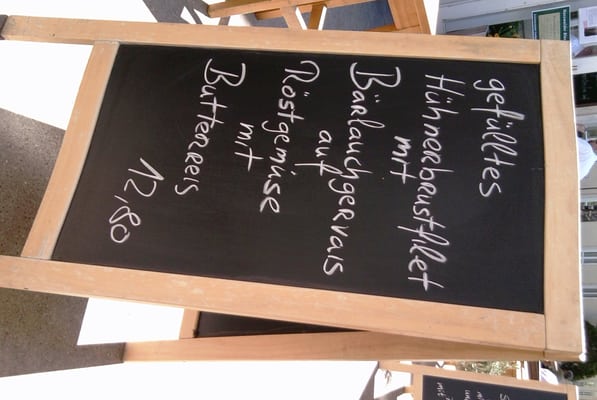 gefülltes
Hühnerbrustfilet
mit
Bärlauchgervais
auf
Röstgemüse
mit
Butterreis
12,80